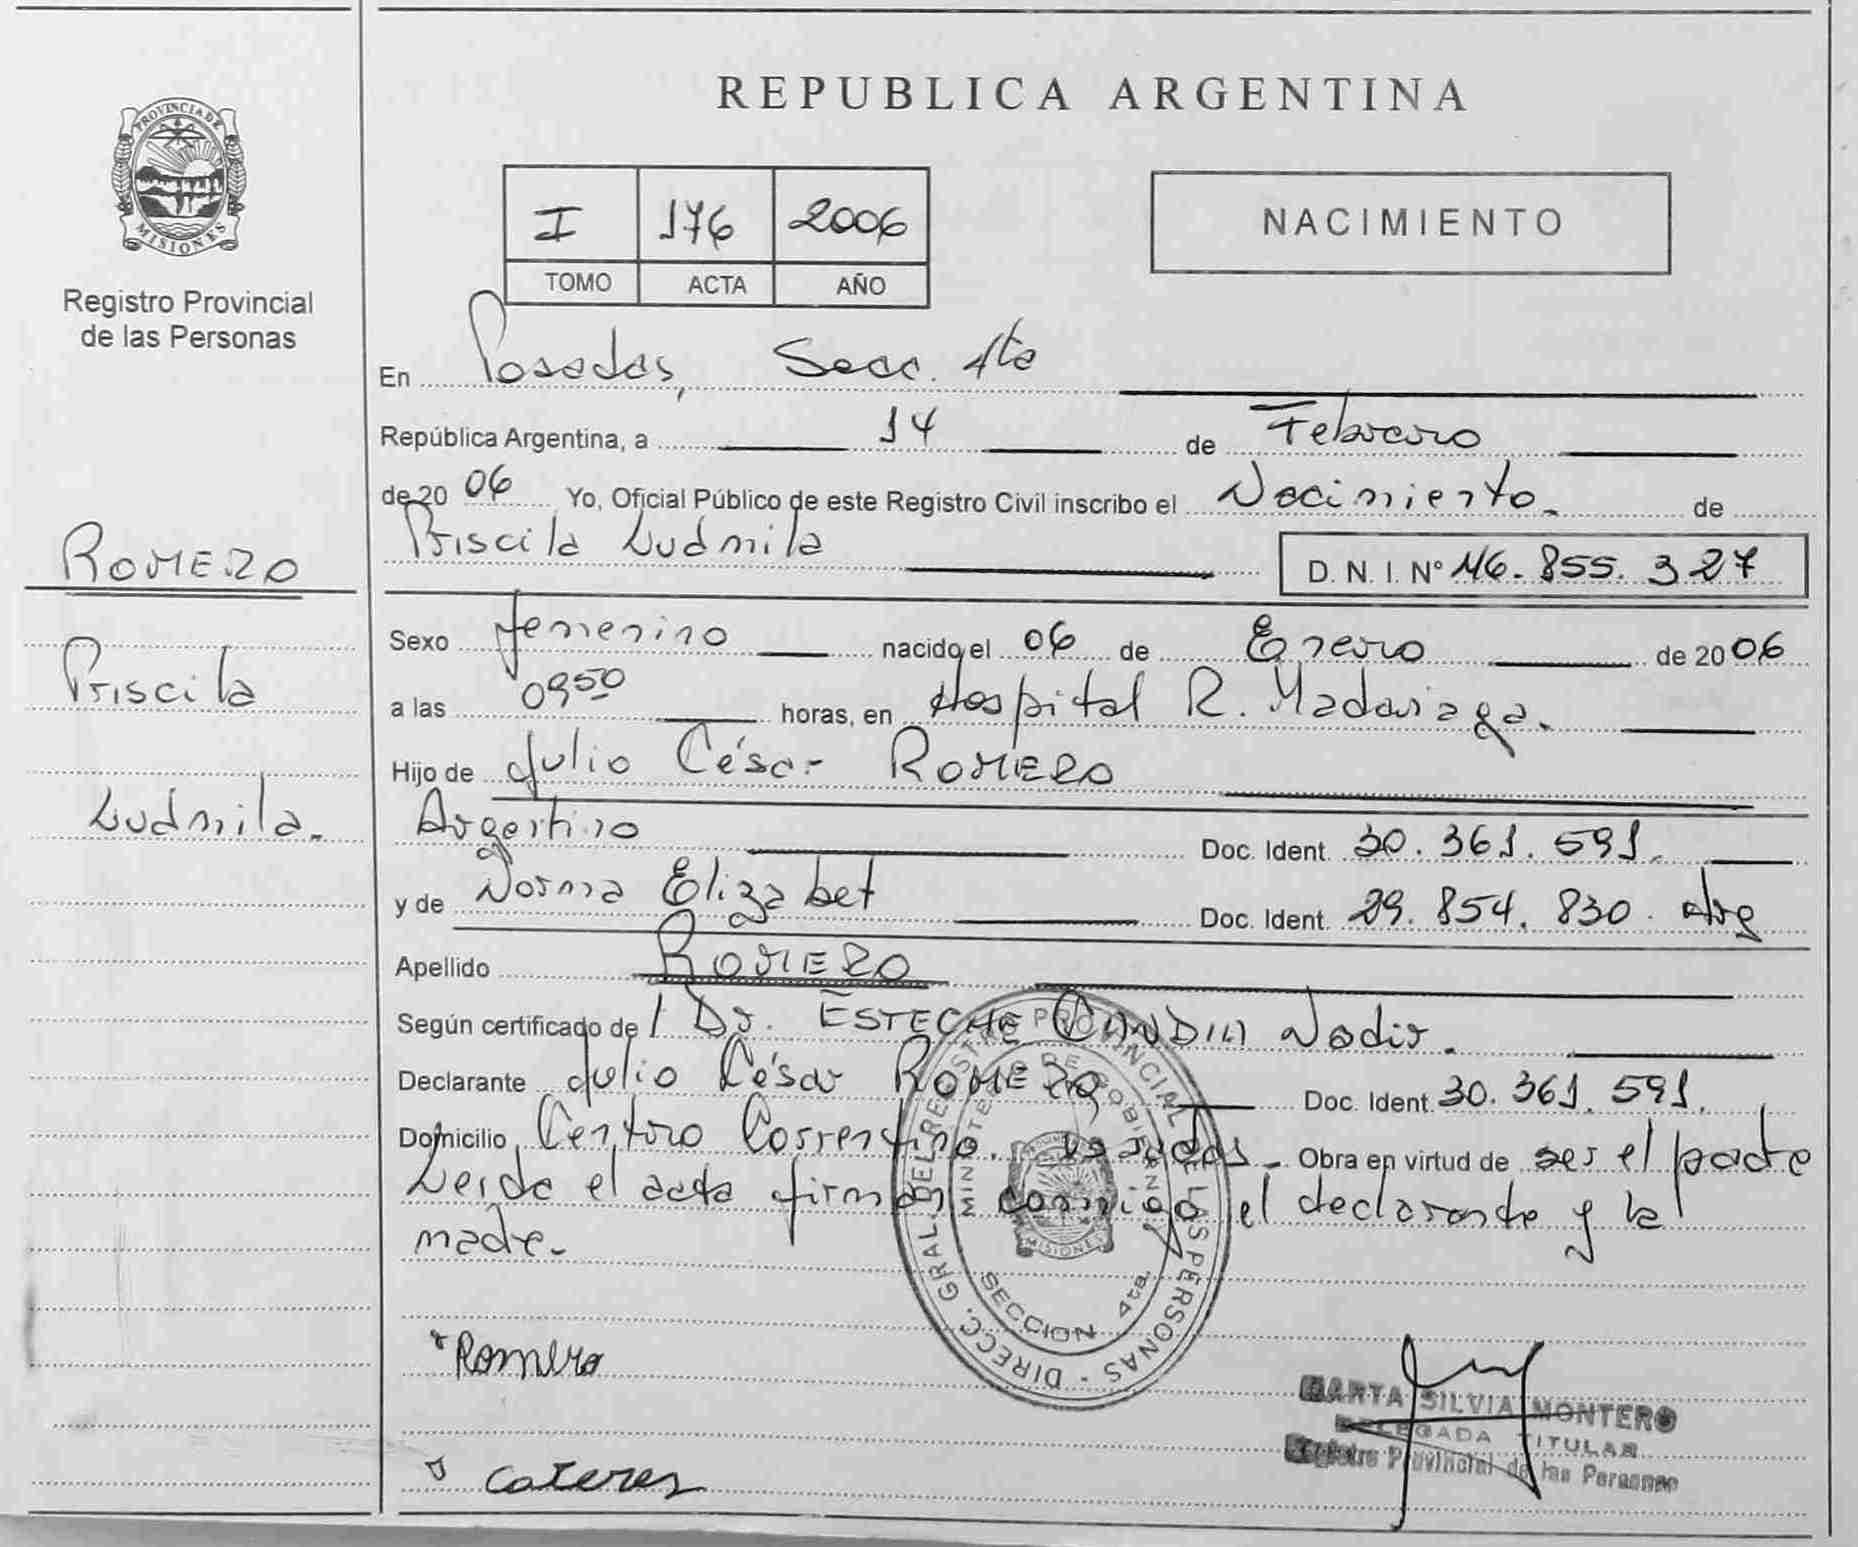 REPUBLICA ARGENTINA
PROVINCIA DE
MISIONES
Registro Provincial
de las Personas
I 176 2006
TOMO ACTA AÑO
NACIMIENTO
En Posadas, Secc. 4ta
República Argentina, a 14 de Febrero
de 2006 Yo, Oficial Público de este Registro Civil inscribo el Nacimiento. de
Priscila Ludmila D. N. I. N° 46.855.327
ROMERO
Priscila
Ludmila.
Sexo femenino nacido el 06 de Enero de 2006
a las 09 50 horas, en Hospital R. Madariaga.
Hijo de Julio César ROMERO
Argentino Doc. Ident. 30.361.591.
y de Norma Elizabet Doc. Ident. 29.854.830. Arg
Apellido ROMERO
Según certificado de Dr. ESTECHE Nadir.
Declarante Julio César ROMERO Doc. Ident. 30.361.591.
Domicilio Centro Correntino. Posadas. Obra en virtud de ser el padre
Leida el acta firman conmigo el declarante y la
madre.
DIRECC. GRAL. DEL REGISTRO PROVINCIAL DE LAS PERSONAS
MINISTERIO DE GOBIERNO
MISIONES
SECCION 4ta.
Romero
MARTA SILVIA MONTERO
DELEGADA TITULAR
Registro Provincial de las Personas